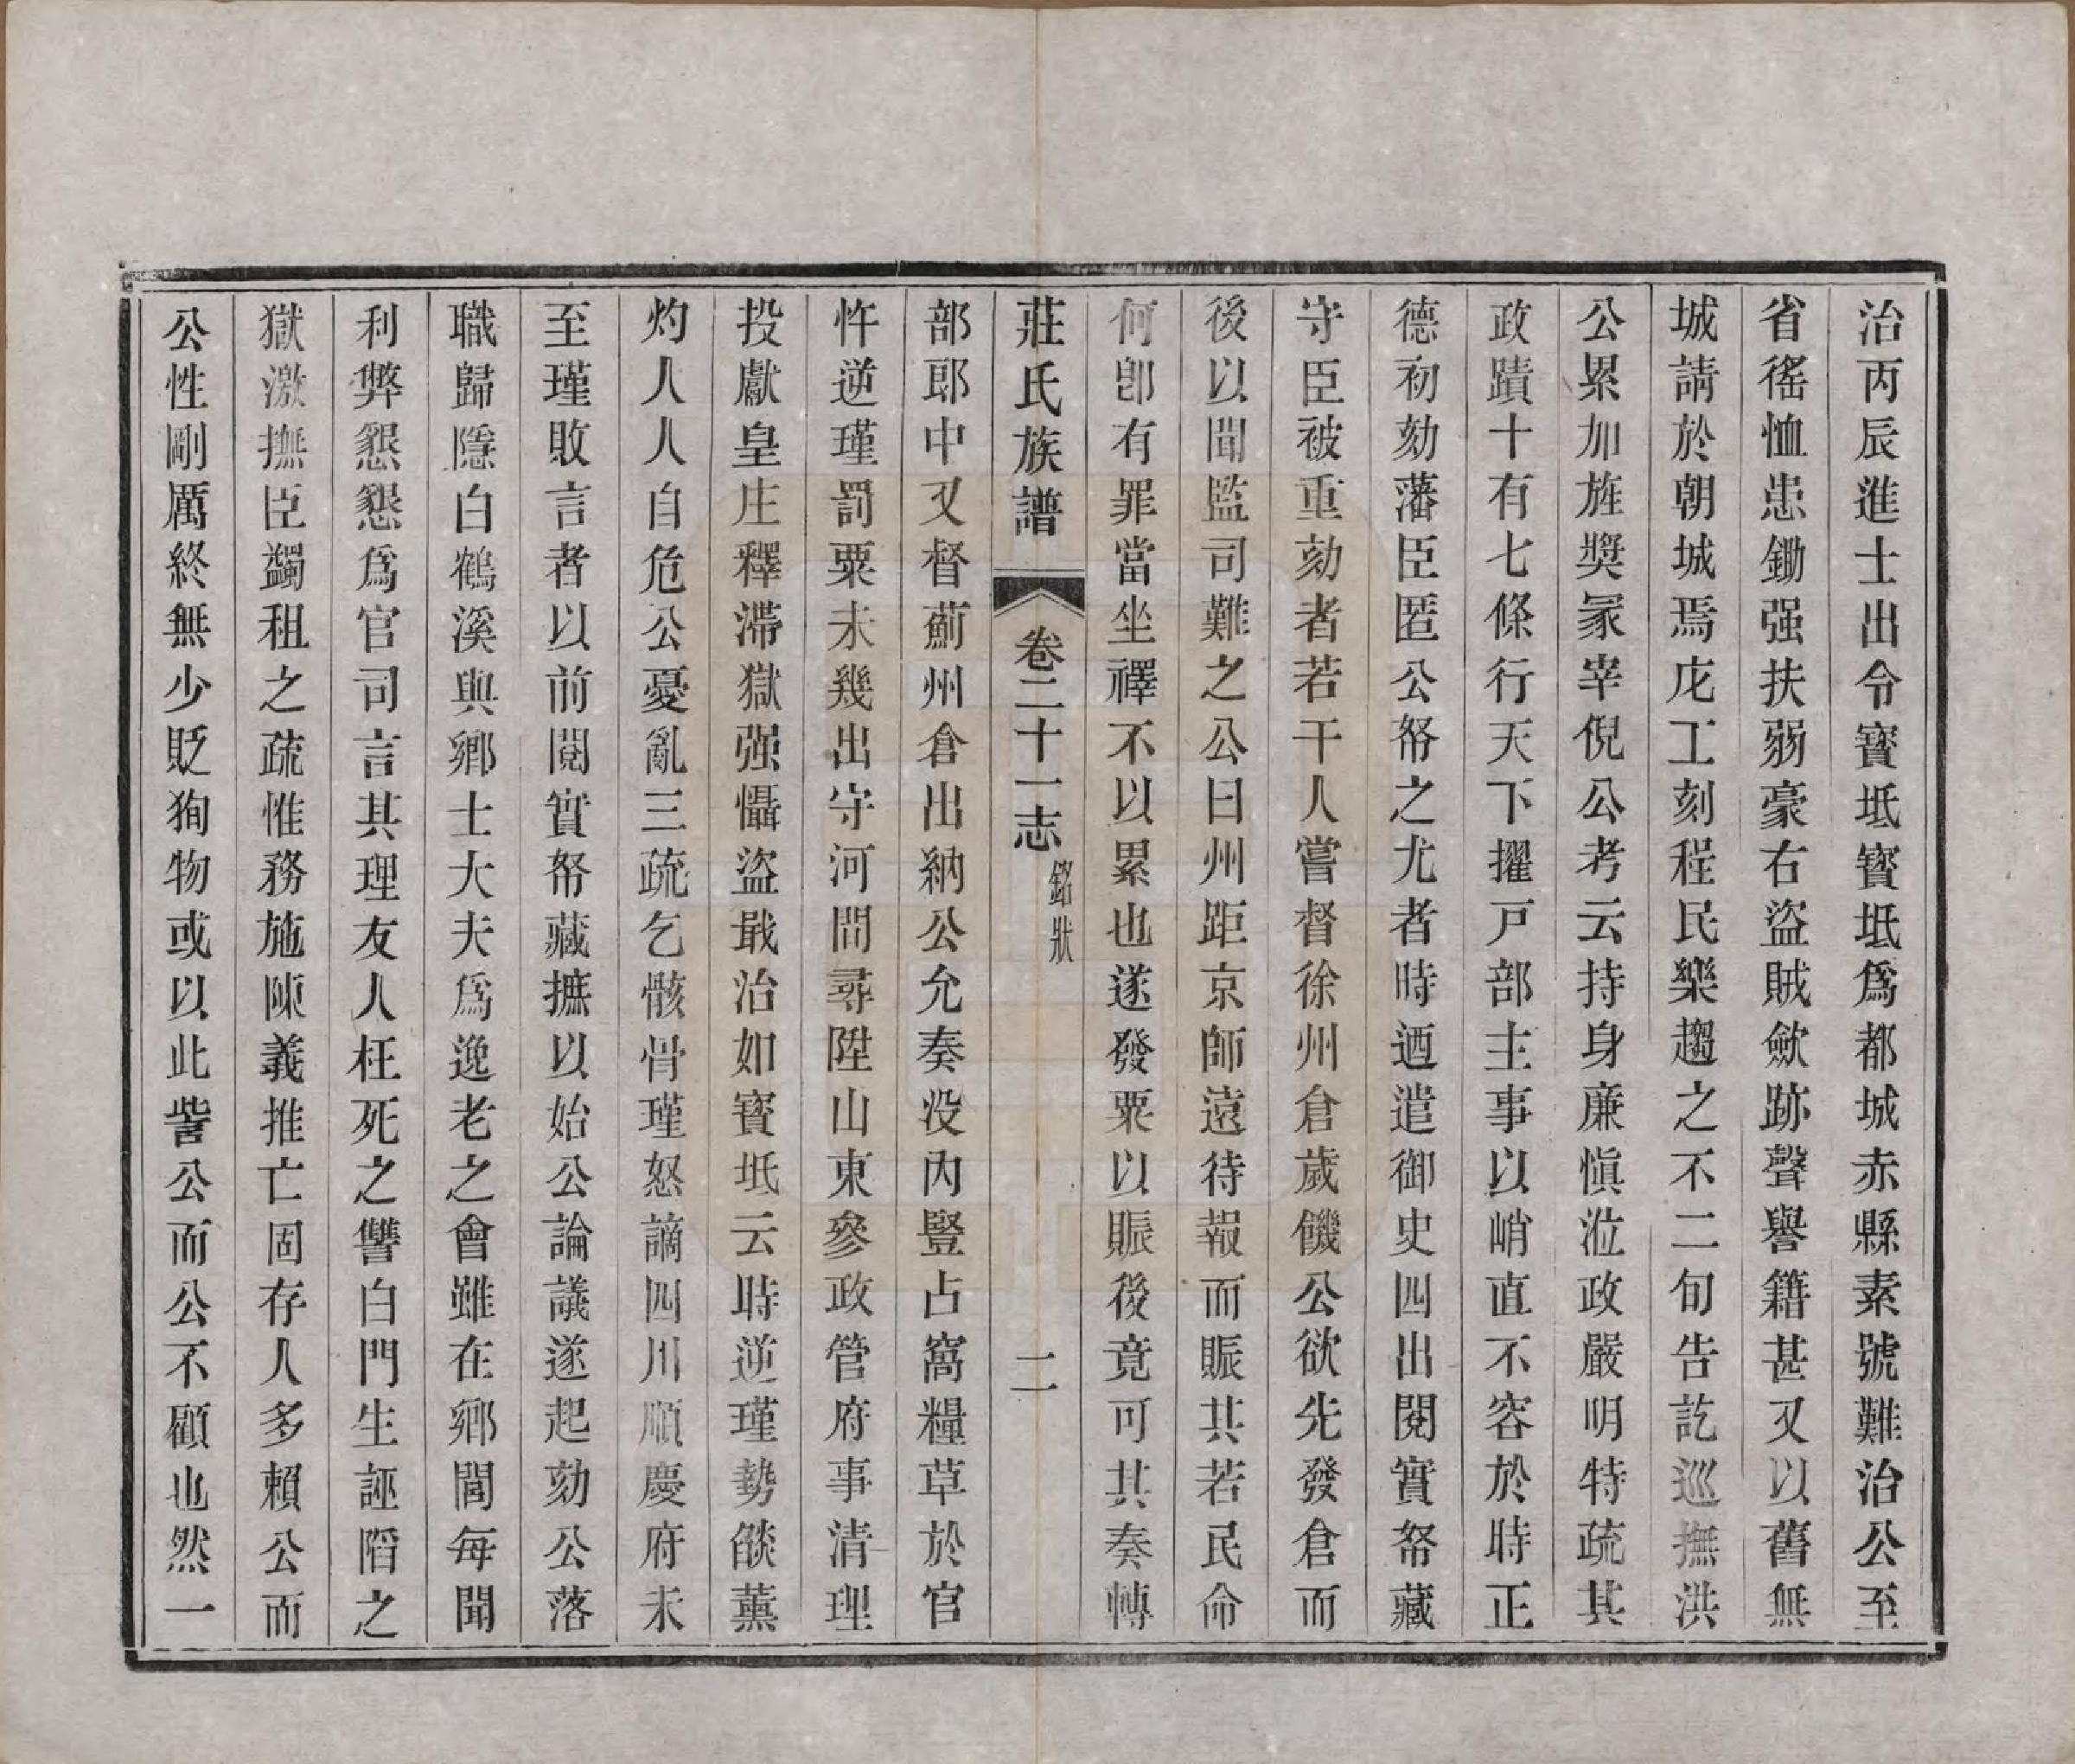 治丙辰進士出令寳坻寳坻爲都城赤縣素號難治公至
省徭恤患鋤强扶弱豪右盜賊歛跡聲譽籍甚又以舊無
城請於朝城焉庀工刻程民樂趨之不二旬告訖巡撫洪
公累加旌奬冡宰倪公考云持身廉愼涖政嚴明特疏其
政蹟十有七條行天下擢戸部主事以峭直不容於時正
德初劾藩臣匿公帑之尤者時迺遣御史四出閱實帑藏
守臣被重劾者若干人嘗督徐州倉歲饑公欲先發倉而
後以聞監司難之公曰州距京師遠待報而賑其若民命
何卽有罪當坐禪不以累也遂發粟以賑後竟可其奏轉
莊氏族譜 卷二十一志 銘狀 二
部郎中又督薊州倉出納公允奏没內豎占窩糧草於官
忤逆瑾罰粟未幾出守河間尋陞山東參政管府事清理
投獻皇庄釋滯獄强懾盜戢治如寳坻云時逆瑾勢燄薰
灼人人自危公憂亂三疏乞骸骨瑾怒謫四川順慶府未
至瑾敗言者以前閱實帑藏摭以始公論議遂起劾公落
職歸隱白鶴溪與鄉士大夫爲逸老之會雖在鄉閭每聞
利弊懇懇爲官司言其理友人枉死之讐白門生誣䧟之
獄激撫臣蠲租之疏惟務施陳義推亡固存人多賴公而
公性剛厲終無少貶狥物或以此訾公而公不顧也然一